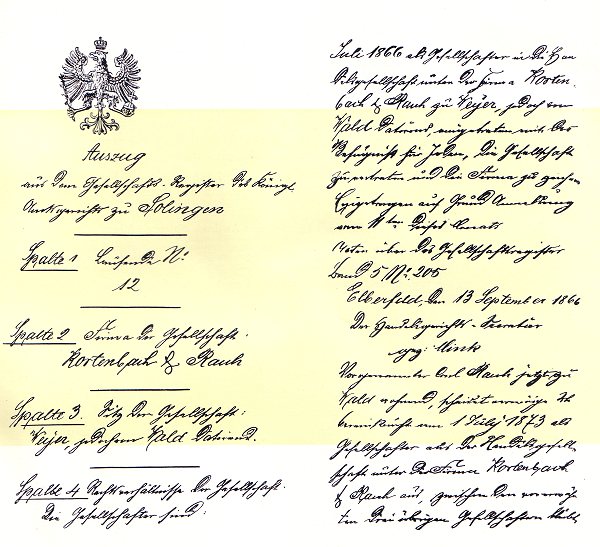 Auszug
aus dem Gesellschafts-Register des Königl.
Amtsgerichts zu Solingen
Spalte 1 Laufende No
12
Spalte 2 Firma der Gesellschaft:
Kortenbach & Rauh
Spalte 3. Sitz der Gesellschaft:
Weyer, jedoch von Wald Datirend.
Spalte 4 Rechtsverhältnisse der Gesellschaft.
Die Gesellschafter sind:
Juli 1866 als Gesellschafter in die Han
delsgesellschaft unter der Firma Korten-
bach & Rauh zu Weyer, jedoch von
Wald Datirend, eingetreten mit der
Befugniß für Jeden, die Gesellschaft
zu vertreten und die Firma zu zeichnen
Eingetragen auf Grund Anmeldung
vom 11ten dieses Monats
Akten über das Gesellschaftsregister
Band 5/No. 205
Elberfeld, den 13 September 1866
Der Handelsgerichts-Secretär
gez: Mink
Vorgenannter Carl Rauh jetzt zu
Wald wohnend, scheidet vorwiege
vom 1 Julij 1873 als
Gesellschafter aus der Handelsgesell-
schaft unter der Firma Kortenbach
& Rauh aus, zwischen den vorerwähn
ten drei übrigen Gesellschaftern bleibt